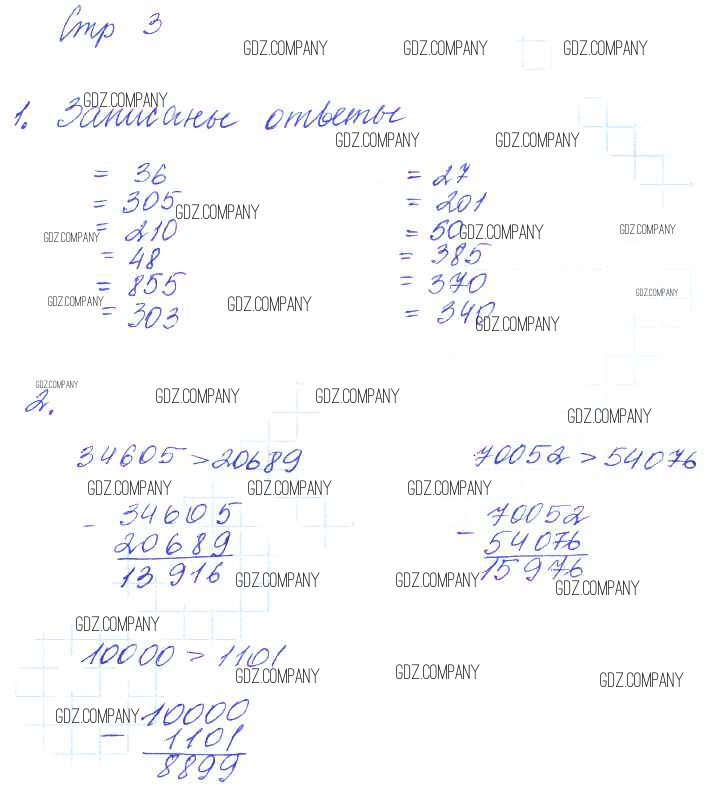 Стр 3
GDZ.COMPANY GDZ.COMPANY GDZ.COMPANY
GDZ.COMPANY
1. Записаны ответы
GDZ.COMPANY GDZ.COMPANY
= 36 = 27
= 305 = 201
GDZ.COMPANY
= 210 = 50
GDZ.COMPANY GDZ.COMPANY GDZ.COMPANY
= 48 = 385
= 855 = 370
GDZ.COMPANY GDZ.COMPANY GDZ.COMPANY
= 303 = 340
GDZ.COMPANY
GDZ.COMPANY
2.
GDZ.COMPANY GDZ.COMPANY
GDZ.COMPANY
34605 > 20689 70052 > 54076
GDZ.COMPANY GDZ.COMPANY GDZ.COMPANY
- 34605 - 70052
20689 54076
13916 15976
GDZ.COMPANY GDZ.COMPANY GDZ.COMPANY
GDZ.COMPANY
10000 > 1101
GDZ.COMPANY GDZ.COMPANY GDZ.COMPANY
GDZ.COMPANY
- 10000
1101
8899